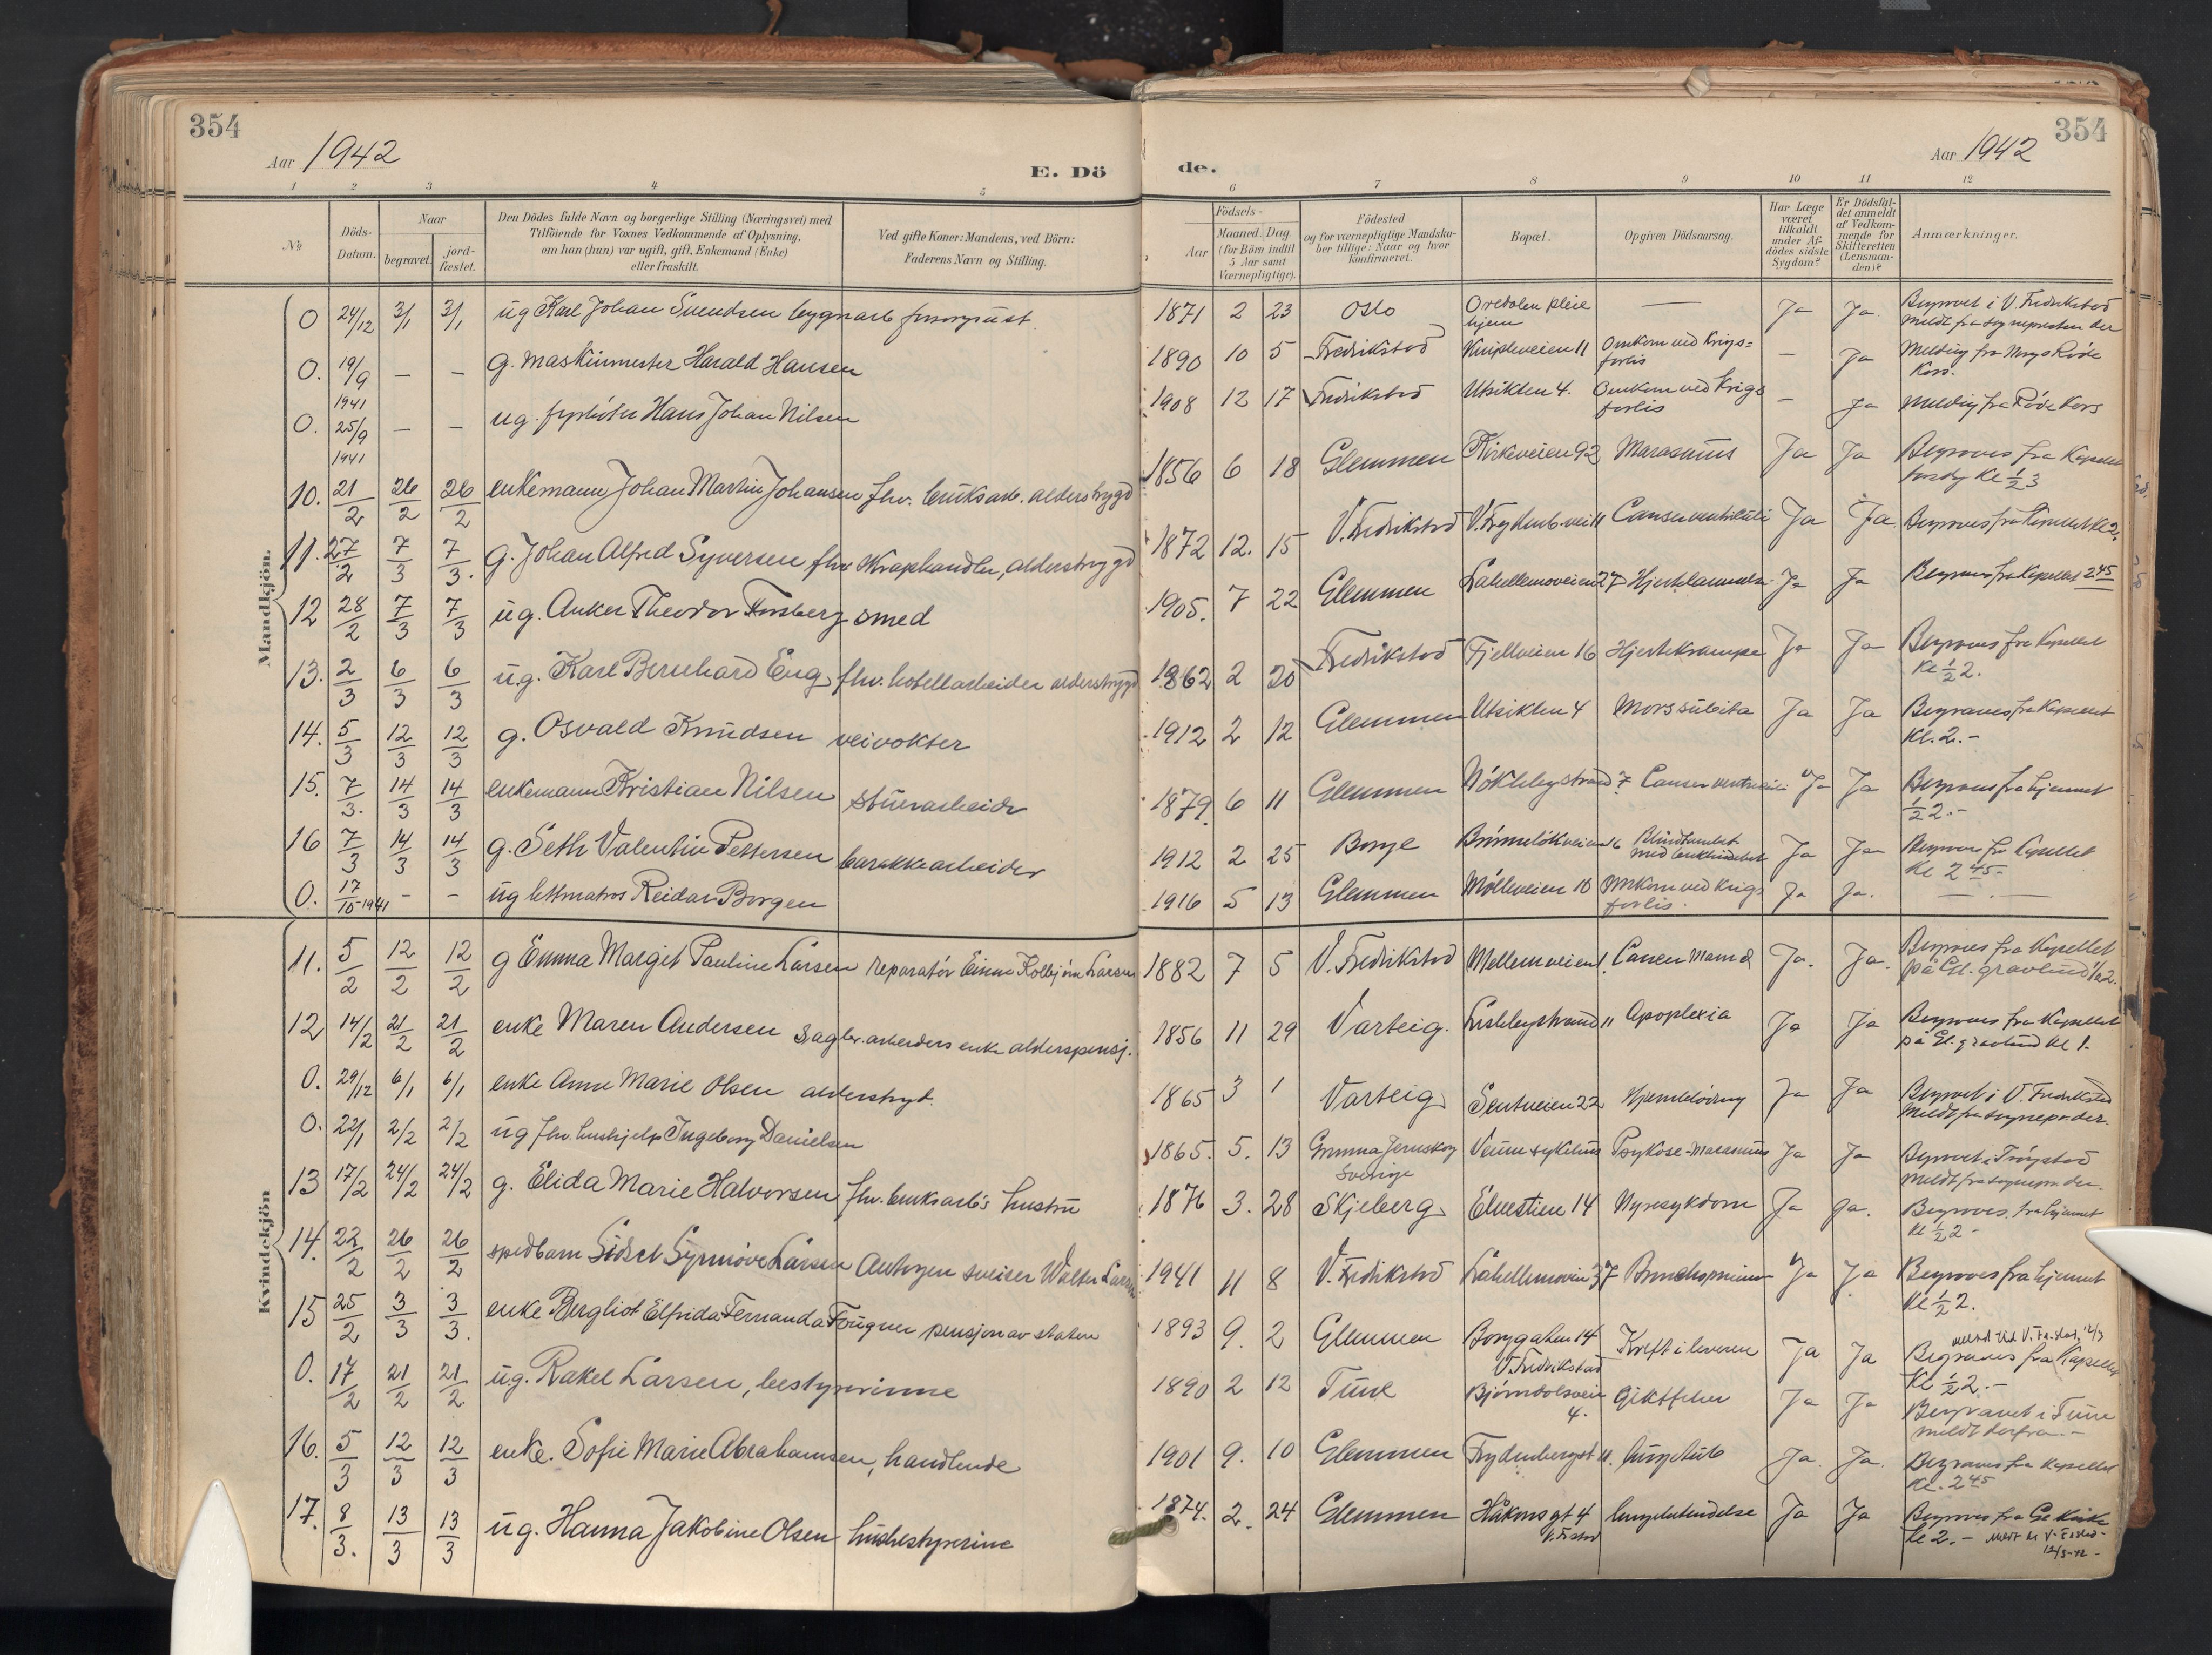 354
Aar 1942
E. Dö
de.
Aar 1942
354
1 2 3 4 5 6 7 8 9 10 11 12
№
Döds-Datum.
Naar
begravet.
jord-fæstet.
Den Dödes fulde Navn og borgerlige Stilling (Næringsvei) med
Tilföiende for Voxnes Vedkommende af Oplysning,
om han (hun) var ugift, gift, Enkemand (Enke)
eller fraskilt.
Ved gifte Koner: Mandens, ved Börn:
Faderens Navn og Stilling.
Födsels-
Aar
Maaned. Dag.
(for Börn indtil
5 Aar samt
Værnepligtige).
Födested
og for værnepligtige Mandska-
ber tillige: Naar og hvor
konfirmeret.
Bopæl.
Opgiven Dödsaarsag.
Har Læge
været
tilkaldt
under Af-
dödes sidste
Sygdom?
Er Dödsfal-
det anmeldt
af Vedkom-
mende for
Skifteretten
(Lensman-
den)?
Anmærkninger.
Mandkjön.
0 24/12 3/1 3/1 ug Karl Johan Svendsen bygnarb 1871 2 23 Oslo pleie hjem — Ja Ja. Begravet i V. Fredrikstad meldt fra sognepresten der
0. 19/9 1941 — — g. maskinmester Harald Hansen 1890 10 5 Fredrikstad Knipleveien 11 Omkom ved Krigs=forlis — Ja Melding fra Norges Røde Kors.
0. 25/9 1941 — — ug. fyrbøter Hans Johan Nilsen 1908 12 17 Fredrikstad Utsikten 4. Omkom ved Krigsforlis — Ja Melding fra Røde Kors
10. 21/2 26/2 26/2 enkemann Johan Martin Johansen fhv. bruksarb. alderstrygd 1856 6 18 Glemmen Kirkeveien 92 Marasmus Ja Ja Begraves fra Kapellet Kl ½3
11. 27/2 7/3 7/3. g. Johan Alfred Syversen fhv skraphandler, alderstrygd 1872 12. 15 V. Fredrikstad V. Frydenb.vei 11 Cancer ventriculi Ja Ja. Begraves fra Kapellet kl 2.
12 28/2 7/3 7/3 ug. Anker Theodor Forsberg smed 1905. 7 22 Glemmen Lahellemoveien 27 Hjertelammelse Ja Ja Begraves fra Kapellet 2 45
13. 2/3 6/3 6/3 ug. Karl Bernhard Eng fhv. hotellarbeider alderstrygd 1862 2 20 Fredrikstad Fjellveien 16 Hjertekrampe Ja Ja Begraves fra Kapellet Kl ½ 2.
14. 5/3 12/3 12/3 g. Osvald Knudsen veivokter 1912 2 12 Glemmen Utsikten 4 Mors subita Ja Ja Begraves fra Kapellet Kl. 2.-
15. 7/3. 14/3 14/3 enkemann Kristian Nilsen stuerarbeider 1879. 6 11 Glemmen Nøkkleby strand 7 Cancer ventriculi Ja Ja Begraves fra hjemmet ½ 2.-
16 7/3 14/3 14/3 g. Seth Valentin Pettersen barakkearbeider 1912 2 25 Borge 16 Blindtarmbet. med bukhinnebet. Ja Ja Begraves fra Kapellet Kl 2 45-
0. 17/10-1941 - - ug lettmatros Reidar Borgen 1916 5 13 Glemmen Mølleveien 10 Omkom ved Krigsforlis. Ja Ja. — . —
Kvindekjön
11. 5/2 12/2 12/2 g Emma Margit Pauline Larsen reparatør Einar Kolbjørn Larsen 1882 7 5 V. Fredrikstad Mellemveien 1. Cancer Mama Ja. Ja. Begraves fra Kapellet på Gl. gravlund ½2.
12 14/2 21/2 21/2 enke Maren Andersen Sagbr.arbeiders enke alderspensj. 1856 11 29 Varteig. Lisleby strand 11 Apoplexia Ja Ja Begraves fra Kapellet på Gl. gravlund kl 1.
0. 29/12 6/1 6/1 enke Anne Marie Olsen alderstrygd. 1865 3 1 Varteig Sentveien 22 Hjernblødning Ja Ja Begravet i V. Fredrikstad Meldt fra sognepr. der.
0. 22/1 2/2 2/2 ug fhv. hushjelp Ingeborg Danielsen 1865. 5. 13 Jernskog Sverige Veum sykehus Psykose-Marasmus Ja Ja Begravet i Trøgstad Meldt fra sognepr. der.
13 17/2 24/2 24/2 g. Elida Marie Halvorsen fhv. bruksarb's hustru 1876 3. 28 Skjeberg Elvestien 14 Nyresykdom Ja Ja. Begraves fra hjemmet Kl ½2-
14. 22/2 26/2 26/2 spedbarn Sidsel Synnøve Larsen Autogen sveiser Walter Larsen 1941 11 8 V. Fredrikstad Lahellemoveien 37 Ja Ja Begraves fra hjemmet Kl ½ 2.
15 25/2 3/3 3/3. enke Bergliot Elfrida Fernanda Fougner pensjon av staten 1893 9. 2 Glemmen Borggaten 14 V. Fredrikstad Kreft i leveren Ja Ja meldt til V. Fr.stad 12/3 Begraves fra Kapellet Kl ½2.-
0. 17/2 21/2 21/2 ug. Rakel Larsen, bestyrerinne 1890 2 12 Tune 4. Giktfeber Ja Ja Begravet i Tune meldt derfra.-
16. 5/3 12/3 12/3 enke. Sofie Marie Abrahamsen, handlende 1901 9. 10 Glemmen Frydenbergst 11. lungetub Ja. Ja. Begraves fra Kapellet Kl. 2 45
17. 8/3. 13/3 13/3 ug. Hanna Jakobine Olsen husbestyrerine 1874. 2. 24 Glemmen Håkonsgt 4 V. Fr.stad lungebetendelse Ja Ja Begraves fra Gl Kirke kl 2.- Meldt til V. Fr.stad- 12/3-42-